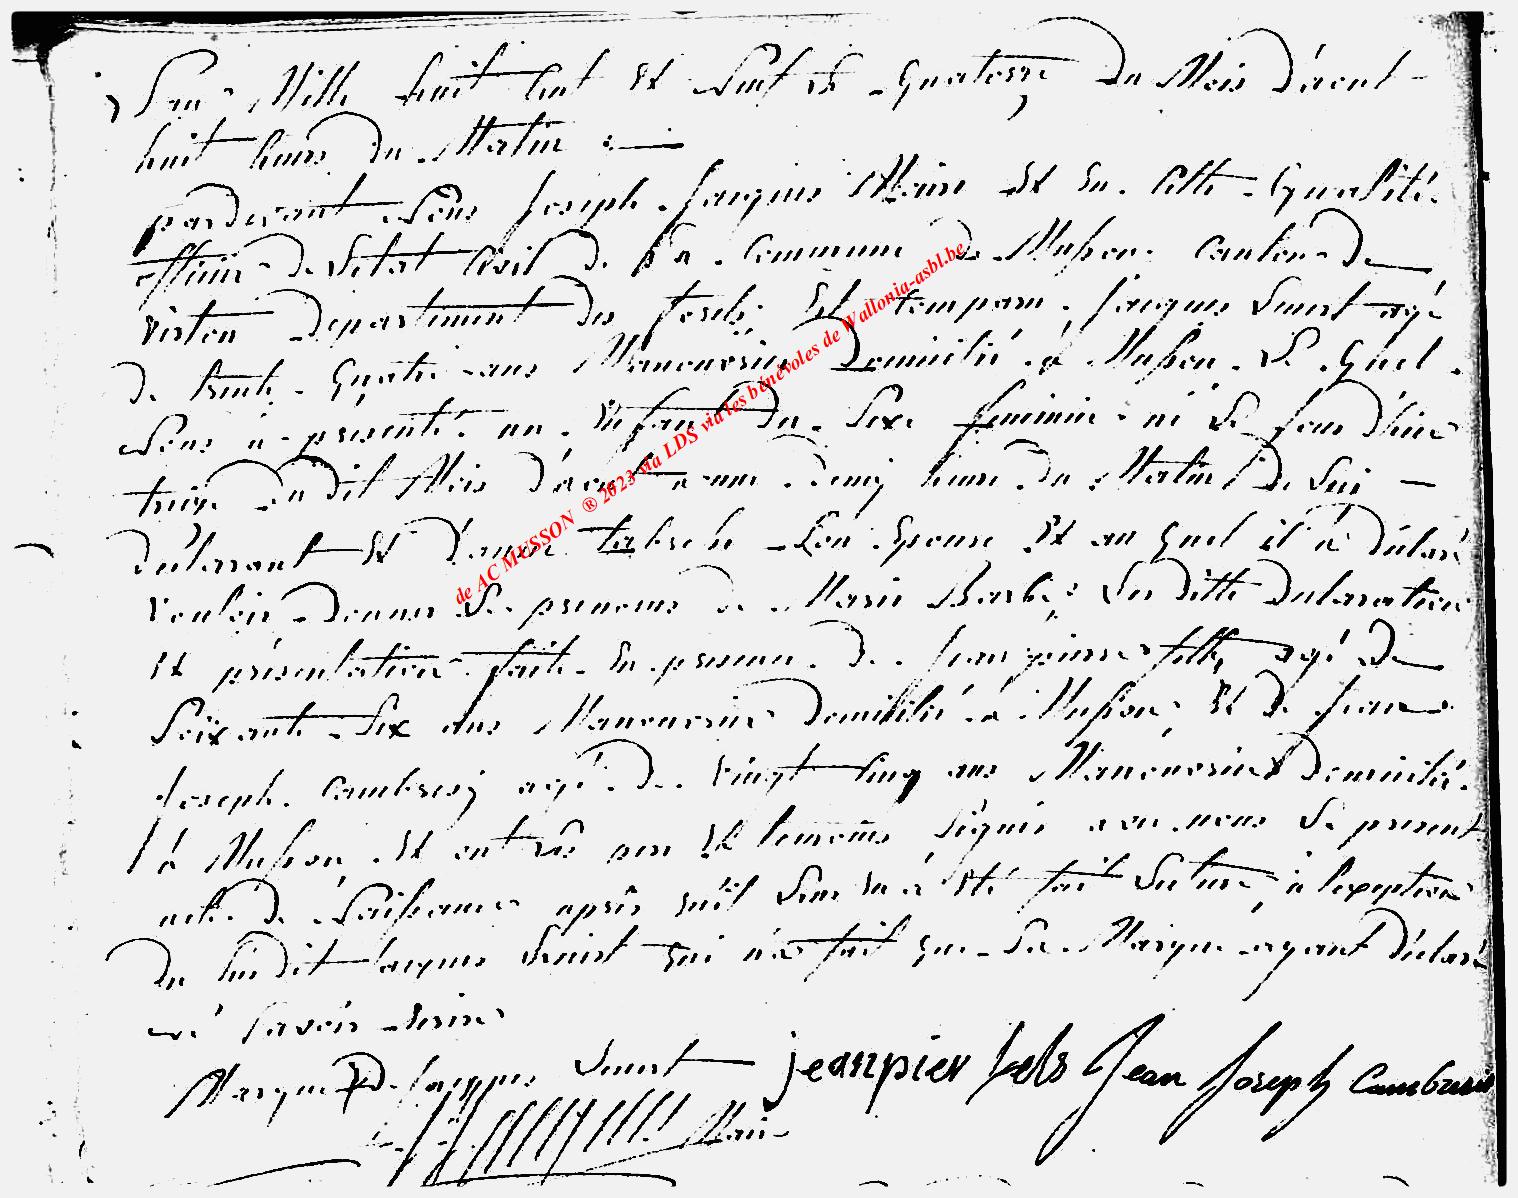 L'an Mille huit Cent Et Sept le Quatorze du Mois D'aout
huit heures du Matin
pardevant Nous Joseph Jacques Maire Et En Cette Qualité
officier de L'etat Civil de La Commune de Musson canton de
virton departement des forets, Est comparu Jacques age
de trente quatre ans Manouvrier Domicilié à Musson Le Quel
Nous à présenté un Enfant du Sexe feminin né Le jour D'hier
treize du dit Mois D'aout a une demy heure du Matin De Lui
déclarant Et D'anne Son Epouse Et au quel il à déclaré
vouloir donner Le prenoms de Marie Barbe, Les ditte Declaration
Et présentation faite En presence de Jean pierre agé de
Soixante Six ans Manouvrier Domicilié à Musson, Et De Jean
Joseph Cambresy agé de vingt Cinq ans Manouvrier Domicilié
à Musson, Et ont Les pere Et temoins Signé avec nous Le present
acte de Naissance après qu'il Leur En à Eté fait Lecture, à l'exception
Du Susdit Jacques qui n'a fait que Sa Marque ayant déclaré
né Savoir Ecrire
Marque de Jacques jeanpier Jean Joseph
Maire
de AC MUSSON ® 2023 via LDS via les bénévoles de Wallonia-asbl.be